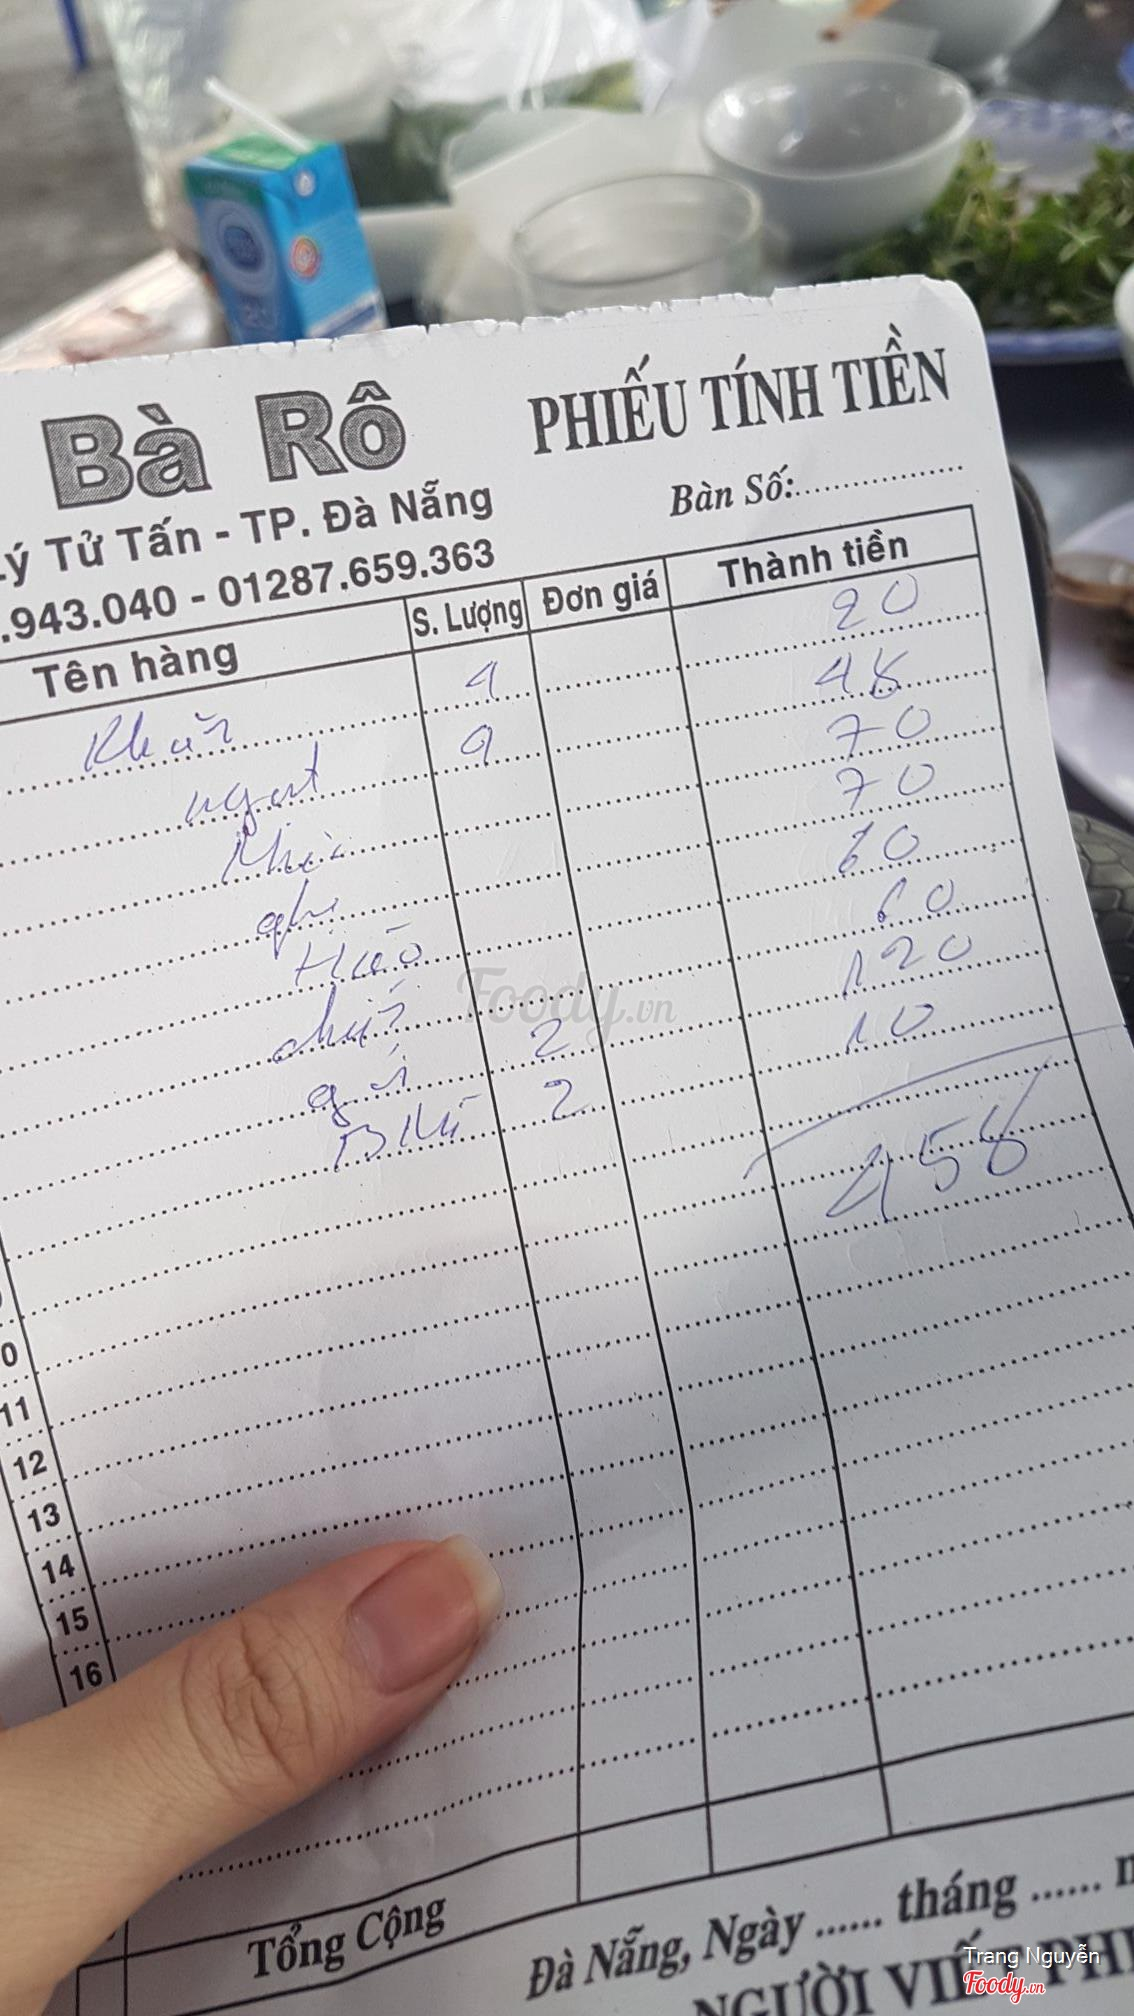 Bà Rô
PHIẾU TÍNH TIỀN
Lý Tử Tấn - TP. Đà Nẵng
Bàn Số:
.943.040 - 01287.659.363
Tên hàng S. Lượng Đơn giá Thành tiền
Khăn 20
ngọt 48
70
ghẹ 70
60
60
2 120
2 10
458
Foody.vn
0
11
12
13
14
15
16
Tổng Cộng
Đà Nẵng, Ngày ...... tháng ......
NGƯỜI VIẾT PHI
Trang Nguyễn
Foody.vn